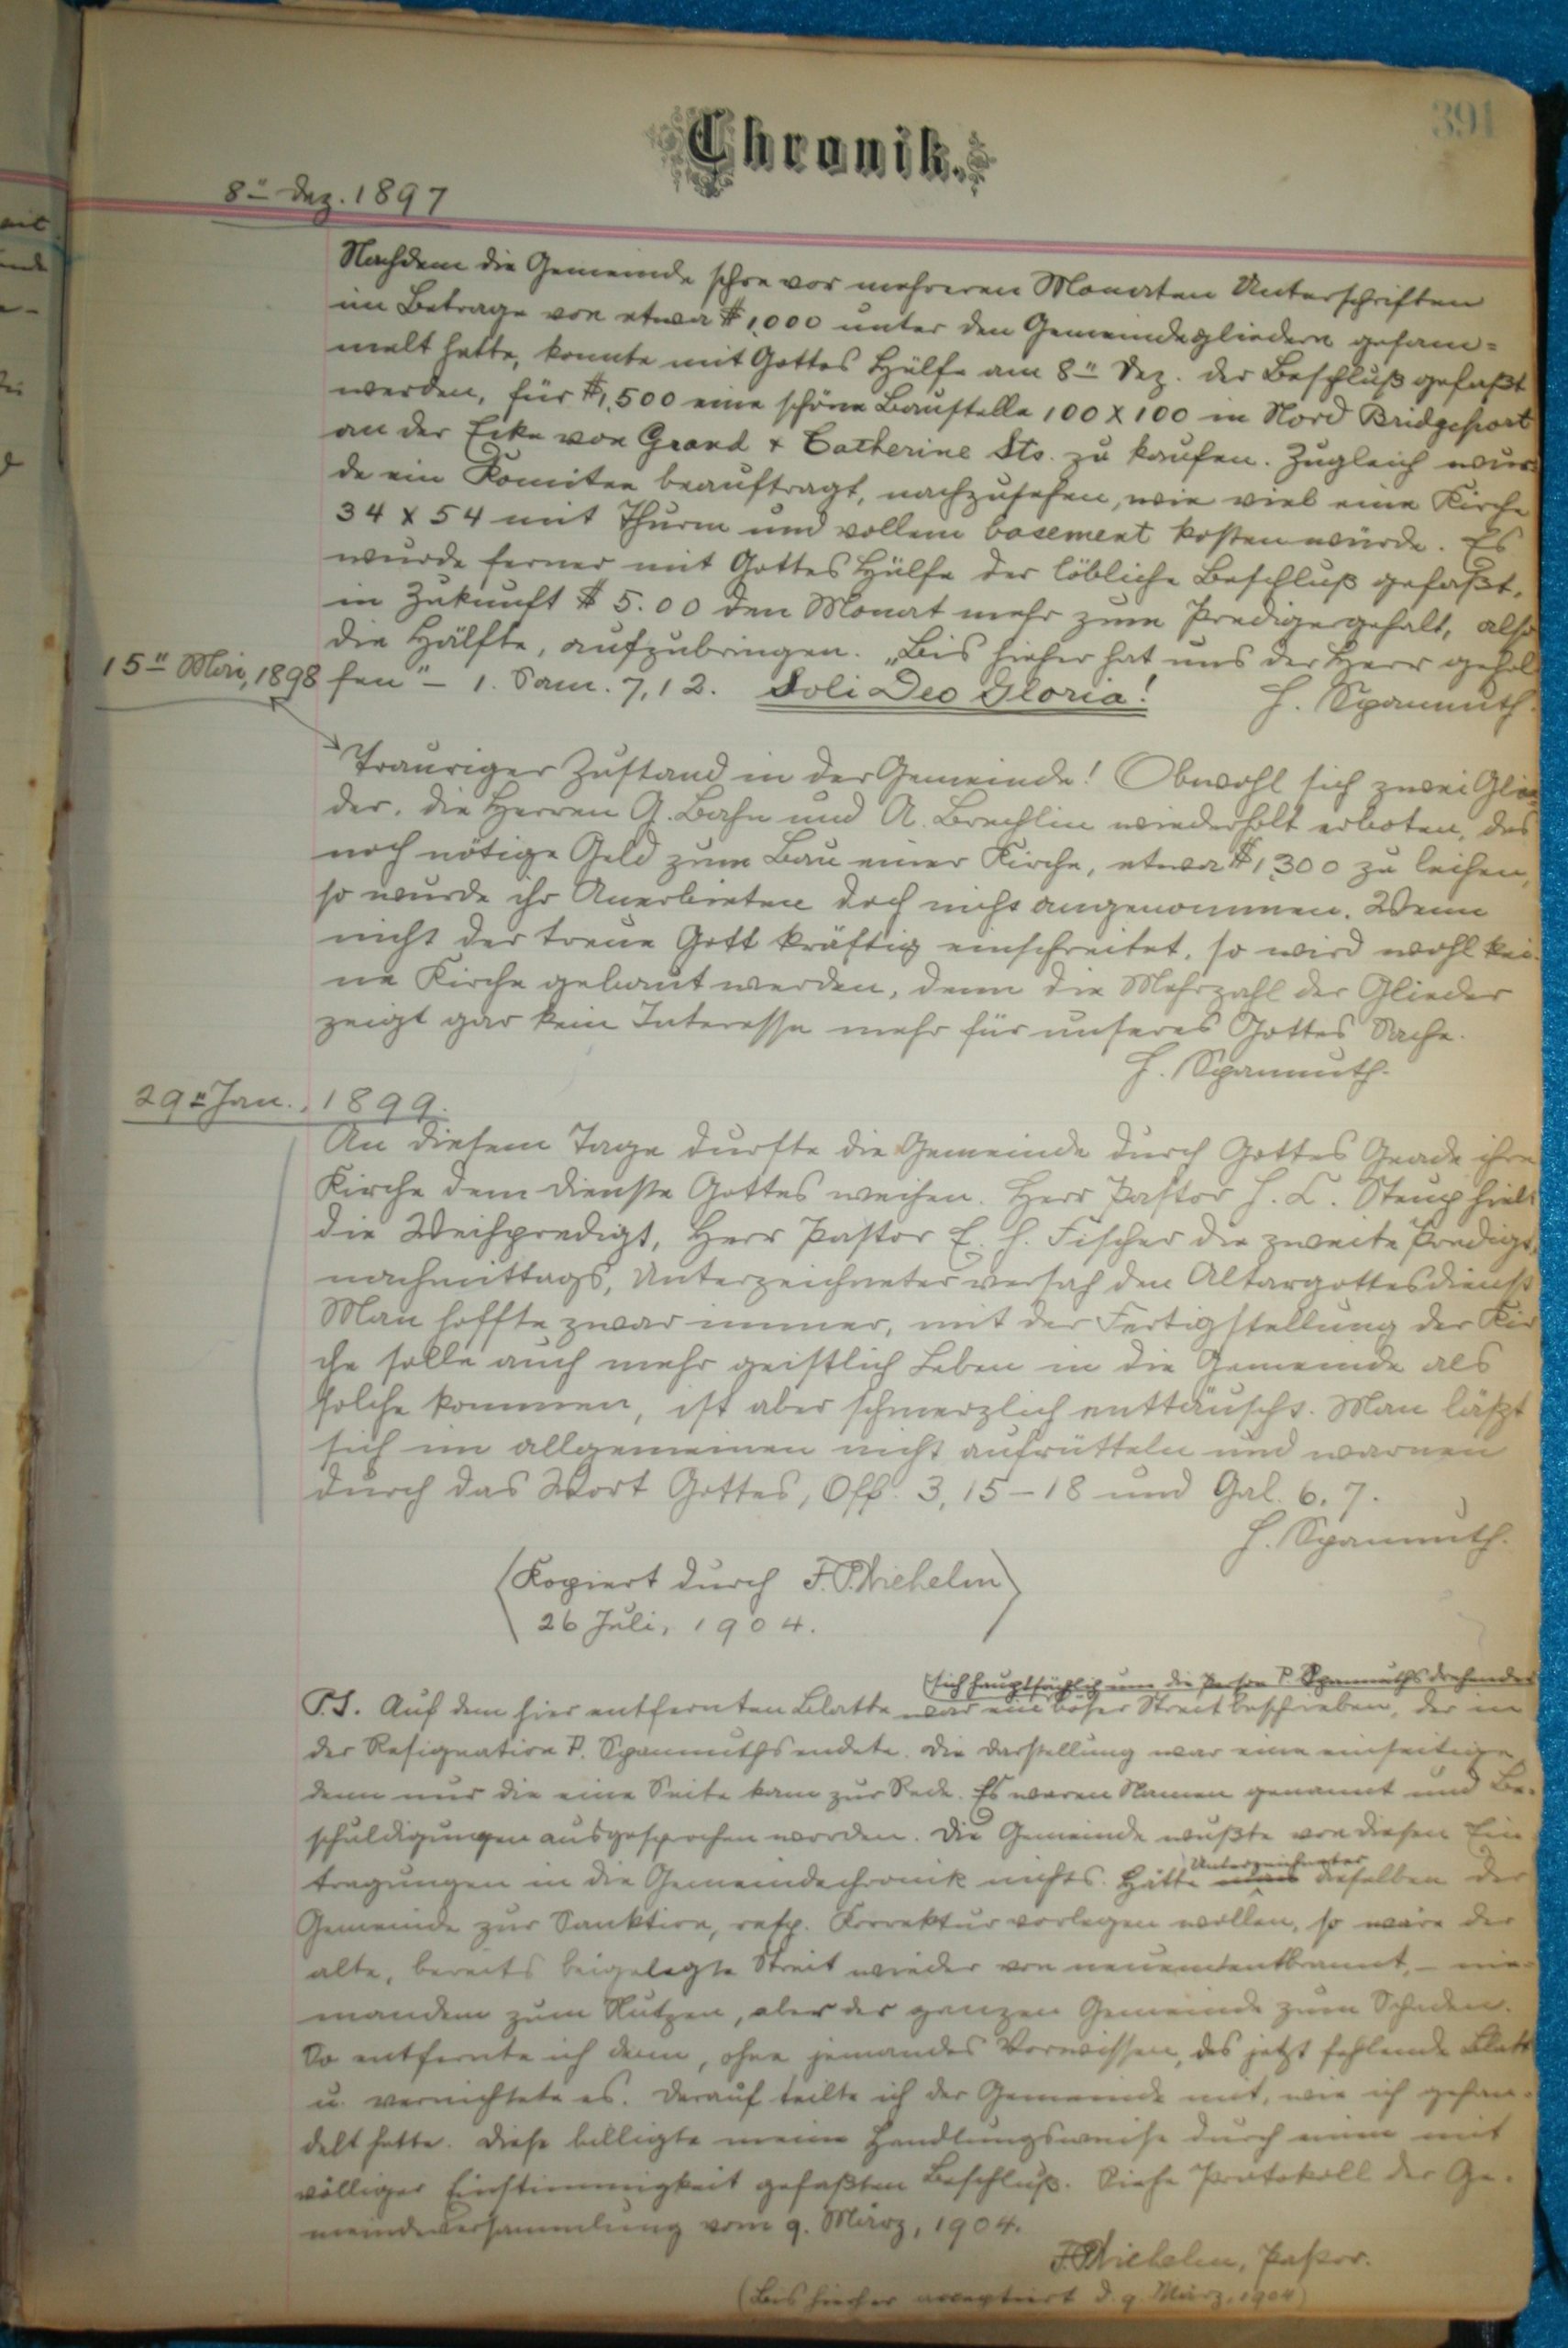 391
Chronik.
8ⁿ Dez. 1897
Nachdem die Gemeinde schon vor mehreren Monaten Unterschriften
im Betrage von etwa $1,000 unter den Gemeindegliedern gesam=
melt hatte, konnte mit Gottes Hülfe am 8ⁿ Dez. der Beschluß gefaßt
werden, für $1,500 eine schöne Baustelle 100 x 100 in Nord Bridgeport
an der Ecke von Grand + Catherine Sts. zu kaufen. Zugleich wur=
de ein Komitee beauftragt, nachzusehen, wie viel eine Kirche
34 x 54 mit Thurm und vollem basement kosten würde. Es
wurde ferner mit Gottes Hülfe der löbliche Beschluß gefaßt,
in Zukunft $5.00 den Monat mehr zum Predigergehalt, also
die Hälfte, aufzubringen. „Bis hieher hat uns der Herr gehol
fen" – 1. Sam. 7,12. Soli Deo Gloria! H. Spannuth.
15ⁿ Mai, 1898
Trauriger Zustand in der Gemeinde! Obwohl sich zwei Glie=
der, die Herren G. Bahn und A. Brechlin wiederholt erboten, das
noch nötige Geld zum Bau einer Kirche, etwa $1,300 zu leihen,
so wurde ihr Anerbieten doch nicht angenommen. Wenn
nicht der treue Gott kräftig einschreitet, so wird wohl kei=
ne Kirche gebaut werden, denn die Mehrzahl der Glieder
zeigt gar kein Interesse mehr für unseres Gottes Sache.
H. Spannuth.
29ⁿ Jan., 1899.
An diesem Tage durfte die Gemeinde durch Gottes Gnade ihre
Kirche dem Dienste Gottes weihen. Herr Pastor H. C. Steup hielt
die Weihpredigt, Herr Pastor E. H. Fischer die zweite Predigt,
nachmittags, Unterzeichneter versah den Altargottesdienst
Man hoffte zwar immer, mit der Fertigstellung der Kir
che solle auch mehr geistlich Leben in die Gemeinde als
solche kommen, ist aber schmerzlich enttäuscht. Man läßt
sich im allgemeinen nicht aufrütteln und warnen
durch das Wort Gottes, Off. 3, 15–18 und Gal. 6, 7.
H. Spannuth.
(Kopiert durch
26 Juli, 1904.)
(sich hauptsächlich um die Person P. Spannuths drehender
P.S. Auf dem hier entfernten Blatte war ein böser Streit beschrieben, der in
der Resignation P. Spannuths endete. Die Darstellung war eine einseitige,
denn nur die eine Seite kam zur Rede. Es waren Namen genannt und Be=
schuldigungen ausgesprochen worden. Die Gemeinde wußte von diesen Ein
Unterzeichneter
tragungen in die Gemeindechronik nichts. Hätte man dieselben der
Gemeinde zur Sanktion, resp. Korrektur vorlegen wollen, so wäre der
alte, bereits beigelegte Streit wieder von neuem entbrannt, – nie=
mandem zum Nutzen, aber der ganzen Gemeinde zum Schaden.
So entfernte ich denn, ohne jemandes Vorwissen, das jetzt fehlende Blatt
u. vernichtete es. Darauf teilte ich der Gemeinde mit, wie ich gehan=
delt hatte. Diese billigte meine Handlungsweise durch einen mit
völliger Einstimmigkeit gefaßten Beschluß. Siehe Protokoll der Ge=
meindeversammlung vom 9. März, 1904.
Pastor.
(Bis hierher acceptiert d. 9. März, 1904)